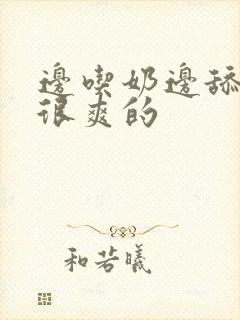 邊喫奶邊舔
很爽的
和若曦